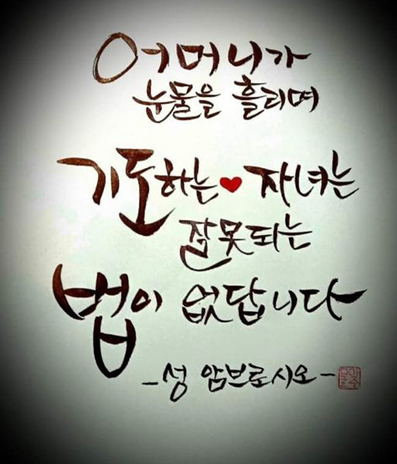 어머니가
눈물을 흘리며
기도하는 자녀는
잘못되는
법이 없답니다
-성 암브로시오-